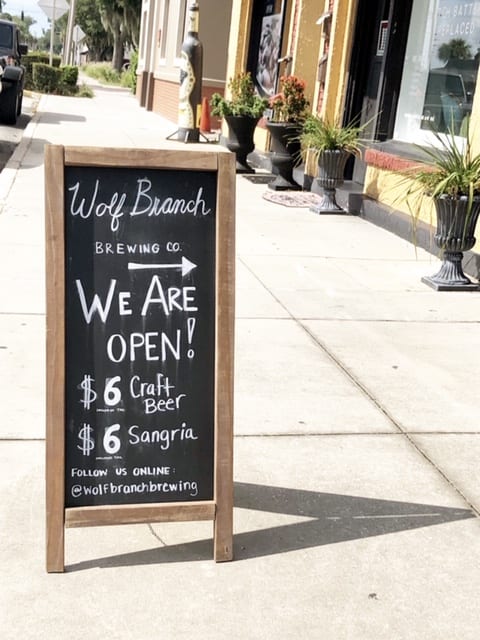 Wolf Branch
BREWING CO.
WE ARE
OPEN!
$6 Craft
Beer
$6 Sangria
FOLLOW US ONLINE:
@wolfbranchbrewing